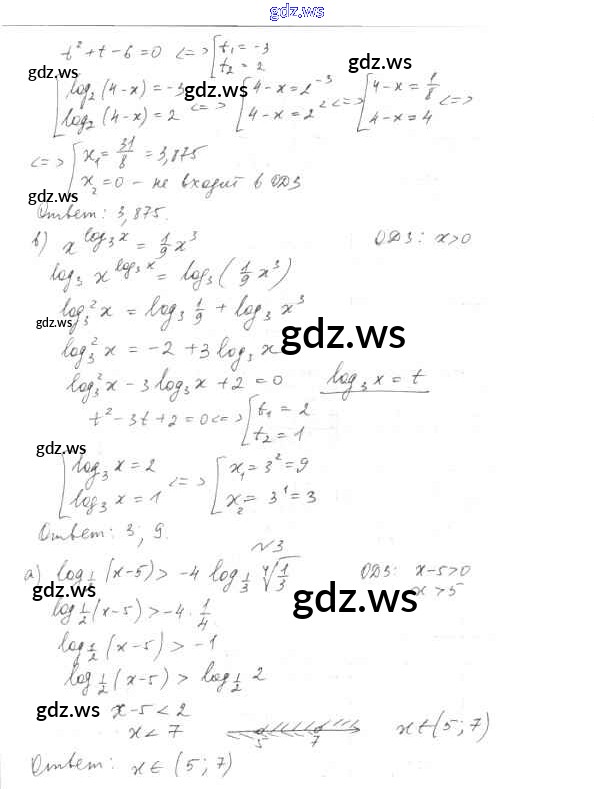 gdz.ws
t² + t - 6 = 0 <=> [ t₁ = -3
t₂ = 2
gdz.ws gdz.ws gdz.ws
[ log₂ (4-x) = -3 <=> [ 4-x = 2⁻³ <=> [ 4-x = 1/8 <=>
log₂ (4-x) = 2 4-x = 2² 4-x = 4
<=> [ x₁ = 31/8 = 3,875
x₂ = 0 - не входит в ОДЗ
gdz.ws
Ответ: 3,875.
в) x^(log₃ x) = 1/9 x³ ОДЗ: x>0
log₃ x^(log₃ x) = log₃ (1/9 x³)
log₃² x = log₃ 1/9 + log₃ x³
gdz.ws
gdz.ws
log₃² x = -2 + 3 log₃ x
log₃² x - 3 log₃ x + 2 = 0 log₃ x = t
t² - 3t + 2 = 0 <=> [ t₁ = 2
t₂ = 1
gdz.ws
[ log₃ x = 2 <=> [ x₁ = 3² = 9
log₃ x = 1 x₂ = 3¹ = 3
Ответ: 3; 9.
№3
а) log_(1/2) (x-5) > -4 log_(1/3) ⁴√(1/3) ОДЗ: x-5>0
x>5
gdz.ws gdz.ws
log_(1/2) (x-5) > -4 · 1/4
log_(1/2) (x-5) > -1
log_(1/2) (x-5) > log_(1/2) 2
gdz.ws
x-5 < 2
x < 7 5 7 x∈(5; 7)
gdz.ws
Ответ: x∈(5; 7)